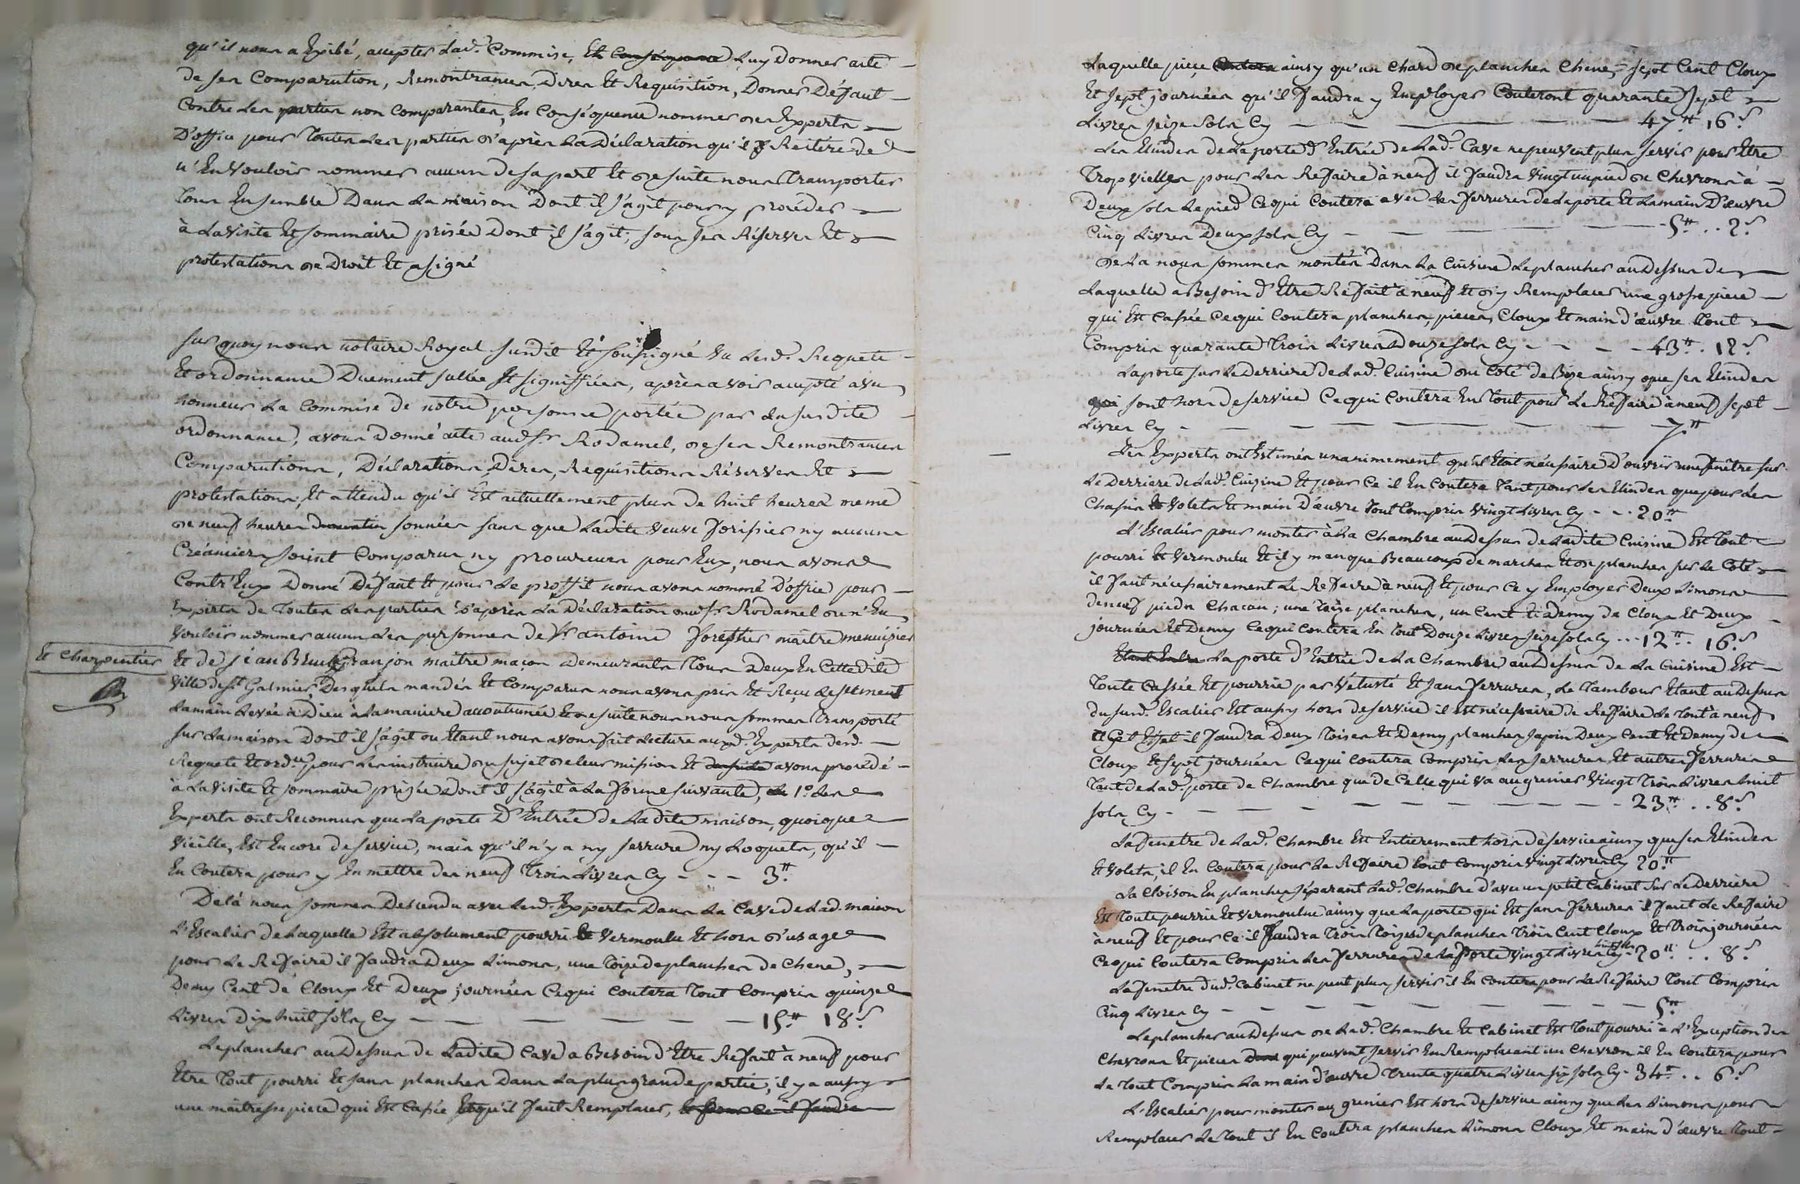 qu'il nous a Exibé, accepter Lad. Commise, Et Conséquence Luy donner acte
de ses Comparution, Remontrances, Dires Et Requisition, Donner Défaut
Contre Les parties non Comparantes, En Conséquence nommer des Experts
D'office pour Toutes Les parties d'après La Déclaration qu'il Reitere de
n'En vouloir nommer aucun de sa part Et de suite nous transporter
Tous Ensemble Dans La maison Dont il s'agit pour y procéder
à La visite Et sommaire prisée Dont il s'agit, sous ses Réserves Et
protestations de Droit Et a signé
sur quoy nous notaire Royal susdit Et soussigné vu Lesd. Requete
Et ordonnance Duement scellée Et signiffiées, après avoir accepté avec
honneur La Commise de notre personne portée par La susdite
ordonnance, avons donné acte aud. sr Rodamel, de ses Remontrances
Comparutions, Déclarations, Dires, Requisitions Réserves Et
protestations, Et attendu qu'il Est actuellement plus de huit heures meme
de neuf heures sonnées sans que Ladite veuve Forissier ny aucuns
Créanciers soient Comparus ny procureurs pour Eux, nous avons
Contr'Eux Donné Défaut Et pour Le proffit nous avons nommé D'office pour
Experts de Toutes Les parties d'après La Déclaration dud. sr Rodamel de n'En
vouloir nommer aucun Les personnes de sr antoine Forissier maitre menuizier
Et Charpentier
Et de Jean Granjon maitre maçon demeurants Tous Deux En Cette dite
ville de St Galmier, Desquels mandés Et Comparus nous avons pris Et Reçu Le serment
La main Levée à Dieu à La maniere accoutumée Et de suite nous nous sommes transporté
sur La maison Dont il s'agit ou Etant nous avons fait Lecture auxd. Experts desd.
Requete Et ordce, pour Les instruire du sujet de Leur mission Et avons procédé
à La visite Et sommaire prisée Dont il s'agit à La forme suivante, 1o. Les
Experts ont Reconnus que La porte D'Entrée de Ladite maison, quoique
vieille, Est Encore de service, mais qu'il n'y a ny serrure ny Loquets, qu'il
En Coutera pour y En mettre des neufs Trois Livres Cy - - - 3tt
De là nous sommes Descendu avec Lesd. Experts Dans La Cave de Lad. maison
L'Escalier de Laquelle Est absolument pourri Et vermoulu Et hors d'usage
pour Le Refaire il faudra Deux Limons, une Toize de planches de Chene,
Demy Cent de Cloux Et Deux journées Ce qui Coutera Tout Compris quinze
Livres Dix huit sols Cy - - - 15tt 18s
Le plancher au Dessus de Ladite Cave a Besoin d'Etre Refait à neuf pour
Etre Tout pourri Et sans planches Dans La plus grande partie, il y a aussy
une maitresse piece qui Est Cassée Et qu'il faut Remplacer, Et pour Ce il faudra
Laquelle piece ainsy qu'un Chard de planches Chene, sept Cent Cloux
Et sept journées qu'il faudra y Employer Couteront quarante sept
Livres seize sols Cy - - - 47tt 16s
Les Elindes de La porte D'Entrée de Lad. Cave ne peuvent plus servir pour Etre
Trop vielles pour Les Refaire à neuf il faudra vingt un pied de Chevrons à
Deux sols Le pied Ce qui Coutera avec Les ferrures de La porte Et La main D'œuvre
Cinq Livres Deux sols Cy - - - 5tt . . 2s
De La nous sommes montés Dans La Cuisine Le plancher au Dessus de
Laquelle a Besoin d'Etre Refait à neuf Et d'y Remplacer une grosse piece
qui Est Cassée Ce qui Coutera planches, pieces, Cloux Et main d'œuvre Tout
Compris quarante Trois Livres Douze sols Cy - - - 43tt . 12s
La porte sur Le Derriere de Lad. Cuisine du Coté de Bize ainsy que ses Elindes
sont hors de service Ce qui Coutera En Tout pour Le Refaire à neuf sept
Livres Cy - - - 7tt
Les Experts ont Estimés unanimement qu'il Etoit nécessaire D'ouvrir une fenêtre sur
Le Derriere de Lad. Cuisine Et pour Ce il En Coutera Tant pour Les Elindes que pour Les
Chassis Et volets Et main D'œuvre Tout Compris vingt Livres Cy - - - 20tt
L'Escalier pour monter à La Chambre au Dessus de Ladite Cuisine Est Tout
pourri Et vermoulu Et il y manque Beaucoup de marches Et de planches sur Le Coté
il faut nécessairement Le Refaire à neuf Et pour Ce y Employer Deux Limons
de neuf pieds Chacun; une Toize planches, un Cent Et Demy de Cloux Et Deux
journées Et Demy Ce qui Coutera En Tout Douze Livres seize sols Cy - - - 12tt . 16s
La porte d'Entrée de La Chambre au Dessus de La Cuisine Est
Toute Cassée Et pourrie par vétusté Et sans ferrures, Le Tambour Etant au Dessus
du susd. Escalier Est aussy hors de service il Est nécessaire de Reffaire Le Tout à neuf
il faudra Deux Toises Et Demy planches sapin Deux Cent Et Demy de
Cloux Et sept journées Ce qui Coutera Compris Les serrures Et autres ferrures
Tant de Lad. porte de Chambre que de Celle qui va au grenier vingt Trois Livres huit
sols Cy - - - 23tt . . 8s
La fenetre de Lad. Chambre Est Entierement hors de service ainsy que ses Elindes
Et volets, il En Coutera pour Le Refaire Tout Compris vingt Livres Cy 20tt
La Cloison En planches séparant Lad. Chambre d'avec un petit Cabinet sur Le Derriere
Est Toute pourrie Et vermoulue ainsy que La porte qui Est sans ferrures il faut Le Refaire
à neuf Et pour Ce il faudra Trois Toizes de planches Trois Cent Cloux Et Trois journées
Ce qui Coutera Compris Les ferrures de La porte vingt Livres huit sols Cy - 20tt . . 8s
La fenetre dud. Cabinet ne peut plus servir il En Coutera pour La Refaire Tout Compris
Cinq Livres Cy - - - 5tt
Le plancher au Dessus de Lad. Chambre Et Cabinet Est Tout pourri à L'Exception des
Chevrons Et pieces qui peuvent servir En Remplacant un Chevron il En Coutera pour
Le Tout Compris La main d'œuvre Trente quatre Livres six sols Cy - 34tt . . 6s
L'Escalier pour monter au grenier Est hors de service ainsy que Les Limons pour
Remplacer Le Tout il En Coutera planches Limons Cloux Et main d'œuvre Tout